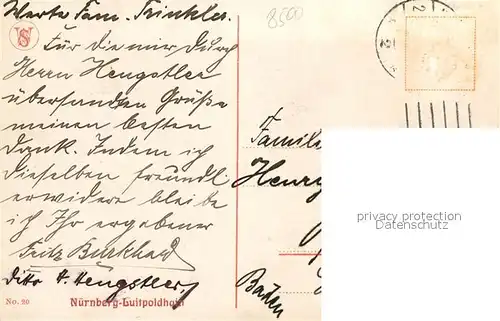 Werte Fam. Trinkler.
8500
Für die mir durch
Herrn Hengstler
übersandten Grüße
meinen besten
Dank. Indem ich
dieselben freundl.
erwidere bleibe
ich Ihr ergebener
Fritz Burkhard
Ditto H. Hengstler
No. 20
Nürnberg-Luitpoldhain
Familie
Henry
Baden
privacy protection
Datenschutz